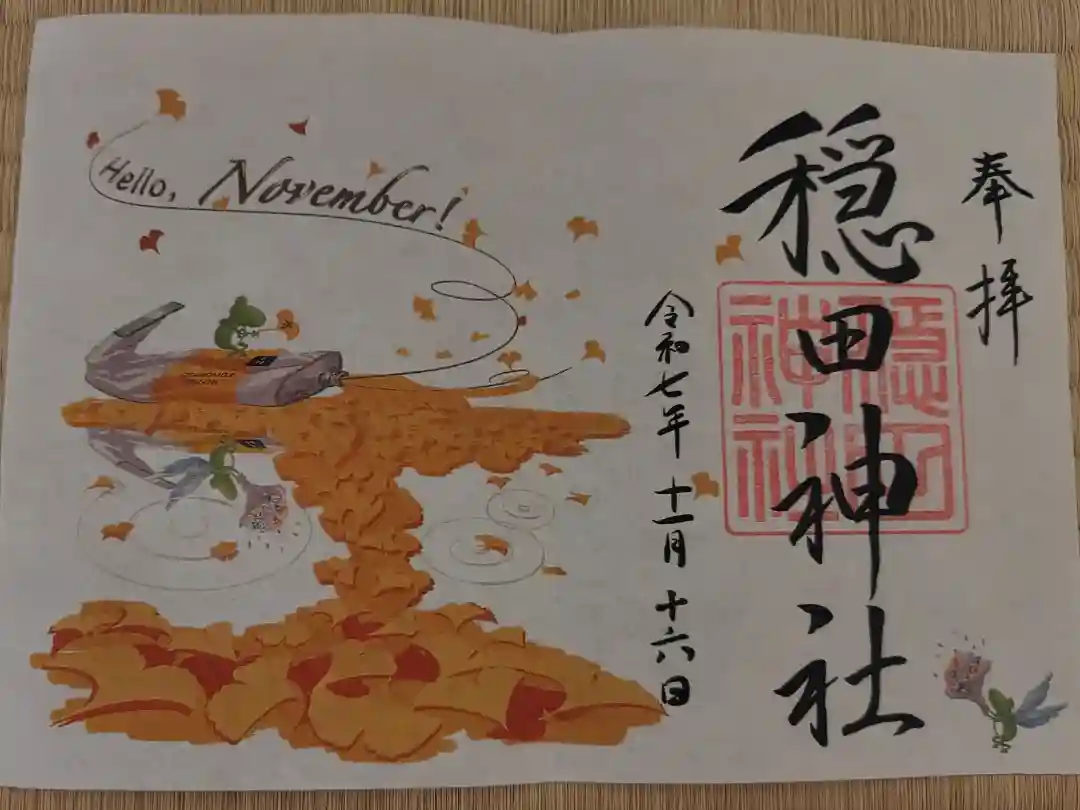 奉拝
穏田神社
穏田
神社
令和七年 十一月 十六日
Hello, November!